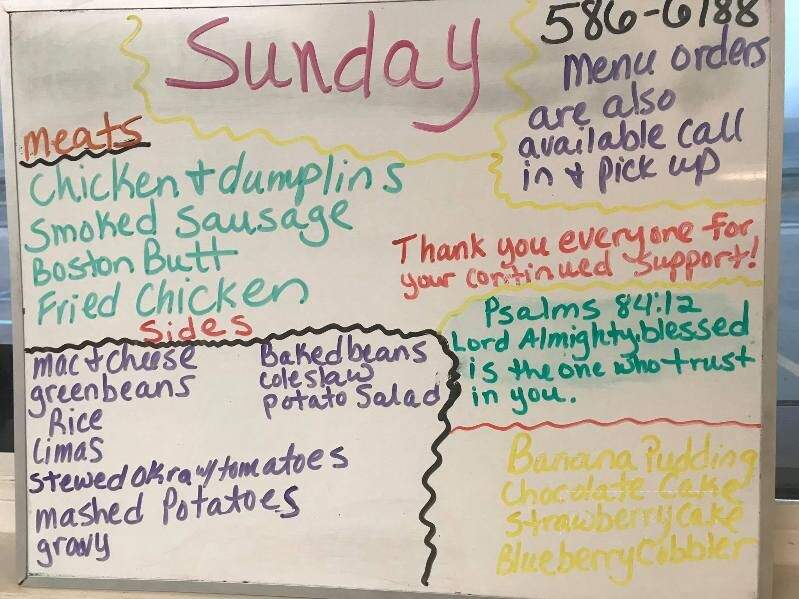 Sunday
586-6188
menu orders
are also
available call
in + pick up
meats
Chicken + dumplins
Smoked Sausage
Boston Butt
Fried Chicken
Thank you everyone for
your continued support!
Sides
mac + cheese
greenbeans
Rice
limas
stewed okra w/ tomatoes
mashed Potatoes
gravy
Baked beans
coleslaw
potato Salad
Psalms 84:12
Lord Almighty, blessed
is the one who trust
in you.
Banana Pudding
Chocolate Cake
Strawberry Cake
Blueberry Cobbler